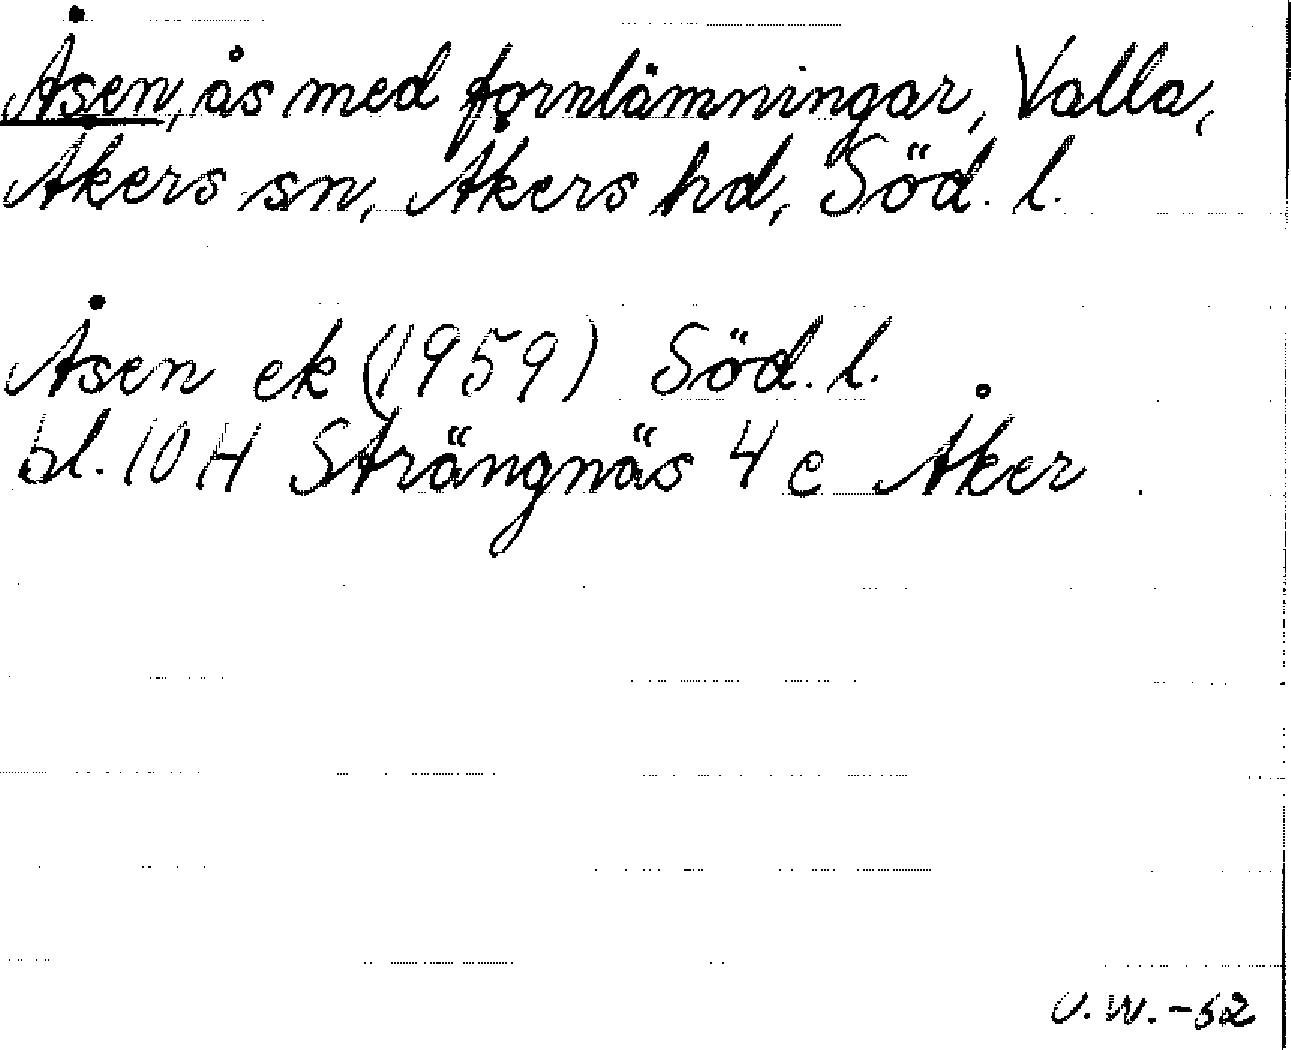 Åsen, ås med fornlämningar, Valla,
Åkers sn, Åkers hd, Söd. l.
Åsen ek (1959) Söd. l.
bl. 10 H Strängnäs 4 e Åker
U.W. -62